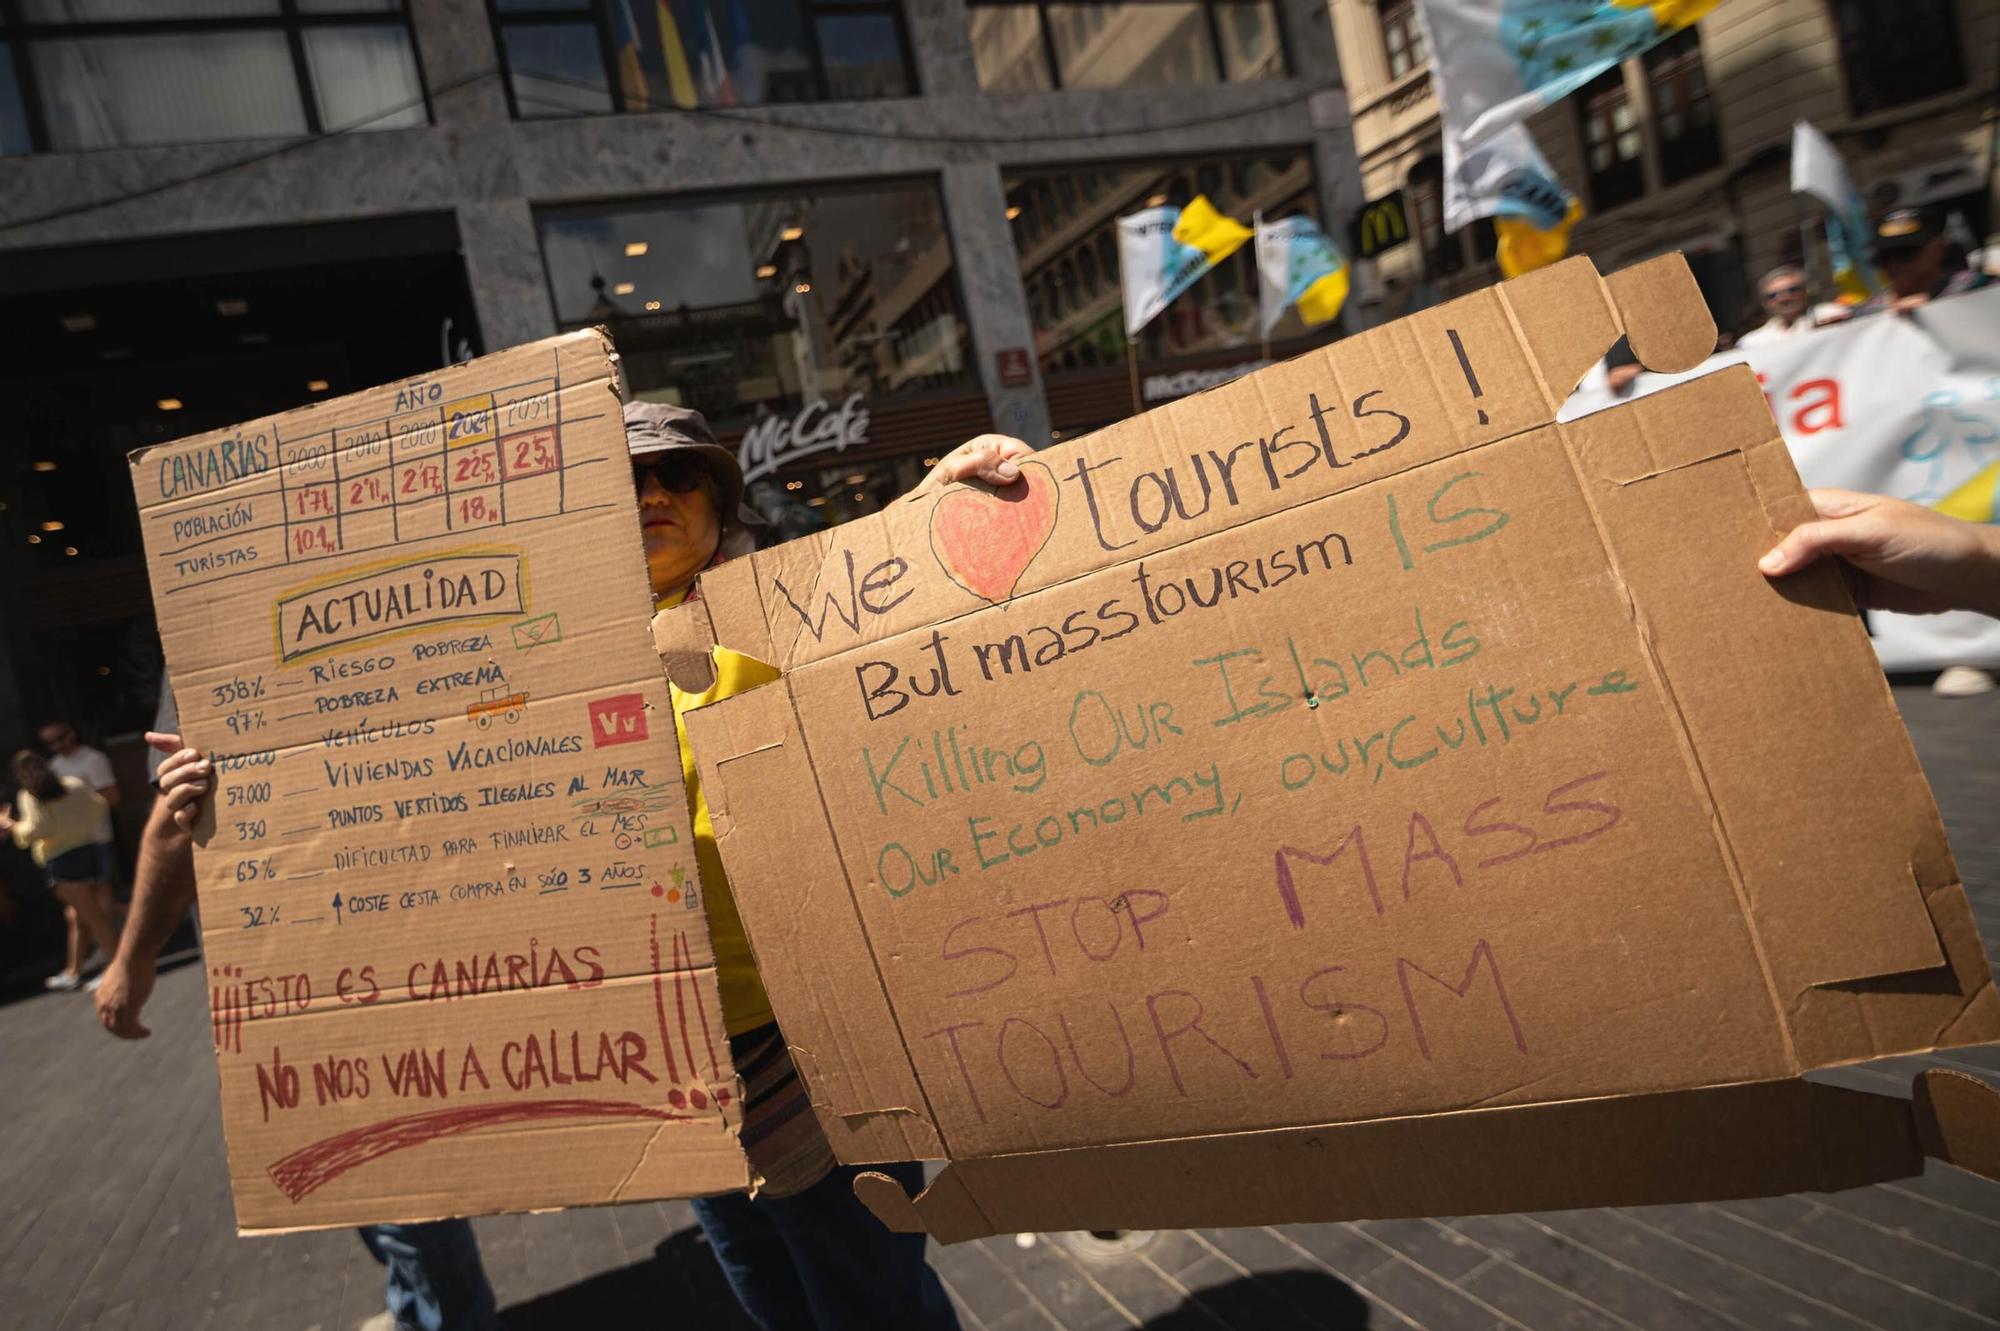 AÑO
CANARIAS 2000 2010 2020 2024
POBLACIÓN 1'71M 2'11M 2'17M 2'25M 25M
TURISTAS 10.1M 18M
ACTUALIDAD
33'8% — RIESGO POBREZA €
9'7% — POBREZA EXTREMA
VEHÍCULOS
57.000 — VIVIENDAS VACACIONALES Vv
330 — PUNTOS VERTIDOS ILEGALES AL MAR
65% — DIFICULTAD PARA FINALIZAR EL MES
32% — ↑ COSTE CESTA COMPRA EN SÓLO 3 AÑOS
¡¡¡ESTO ES CANARIAS
NO NOS VAN A CALLAR!!!
We ❤ tourists!
But mass tourism IS
Killing Our Islands
Our Economy, our, Culture
STOP MASS
TOURISM
McCafé
McDonald's
ia